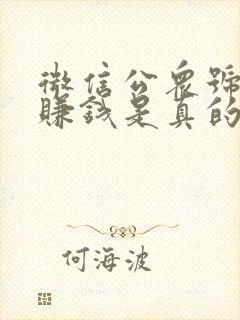 微信公衆號
賺錢是真的
何海波